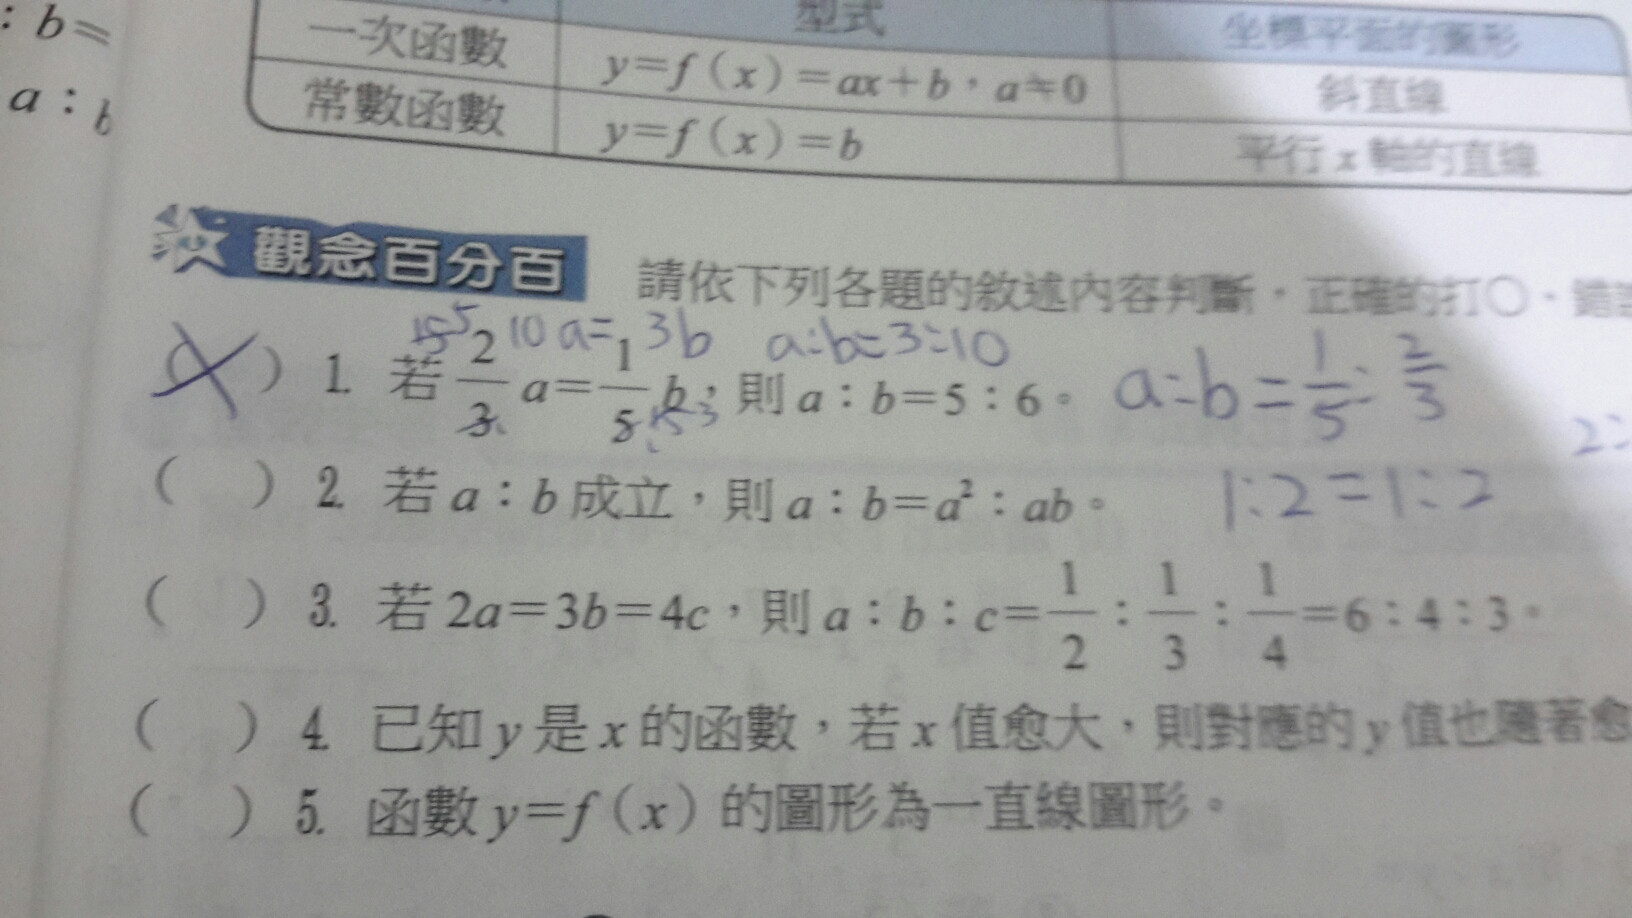 : b=
a : b
型式
坐標平面的圖形
一次函數
y=f(x)=ax+b，a≠0
斜直線
常數函數
y=f(x)=b
平行 x 軸的直線
觀念百分百
請依下列各題的敘述內容判斷，正確的打○、錯
10a=3b a:b=3:10
( ) 1. 若 2/3 a=1/5 b，則 a：b=5：6。 a:b=1/5:2/3
2:
( ) 2. 若 a：b 成立，則 a：b=a²：ab。 1:2=1:2
( ) 3. 若 2a=3b=4c，則 a：b：c=1/2：1/3：1/4=6：4：3。
( ) 4. 已知 y 是 x 的函數，若 x 值愈大，則對應的 y 值也隨著愈
( ) 5. 函數 y=f(x) 的圖形為一直線圖形。